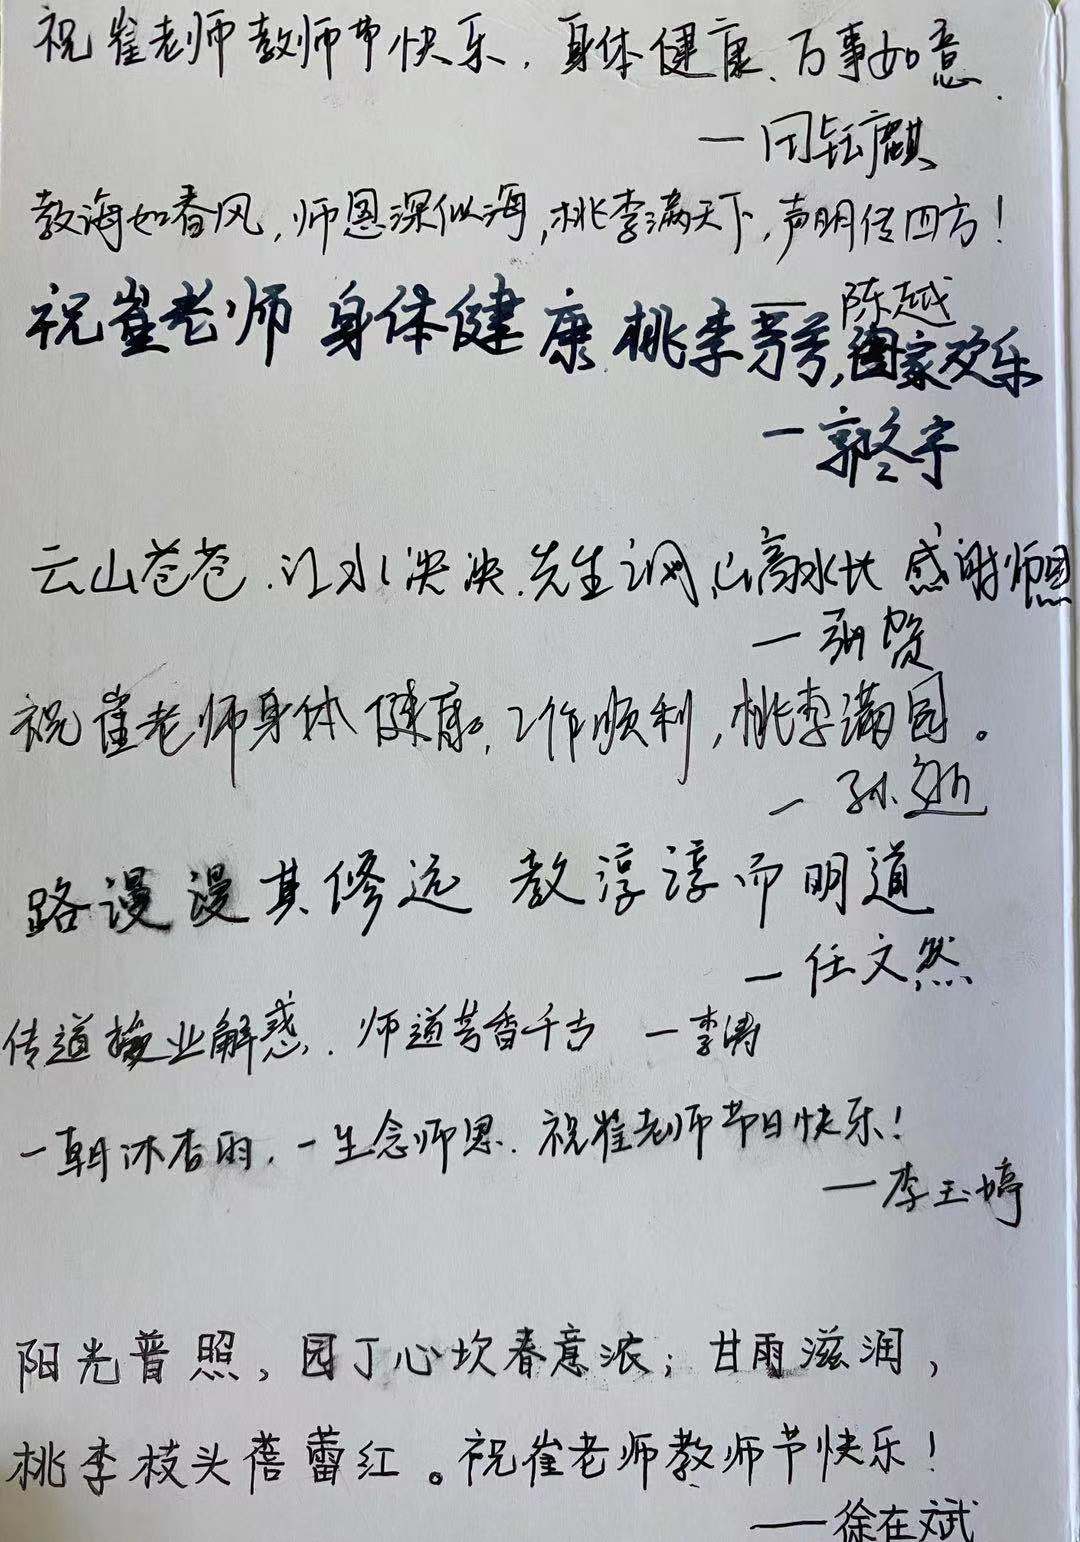 祝崔老师教师节快乐，身体健康、万事如意．
一闫钰麒
教海如春风，师恩深似海，桃李满天下，声明传四方！
一陈越
祝崔老师身体健康．桃李芳芳，阖家欢乐
一郭冬宇
云山苍苍．江水泱泱．先生之风，山高水长 感谢师恩
一张贺
祝崔老师身体健康，工作顺利，桃李满园。
一孙逊
路漫漫其修远 教淳淳而明道
一任文然
传道授业解惑．师道芳香千古 一李涛
一朝沐杏雨，一生念师恩．祝崔老师节日快乐！
一李玉婷
阳光普照，园丁心坎春意浓；甘雨滋润，
桃李枝头蓓蕾红。祝崔老师教师节快乐！
——徐在斌